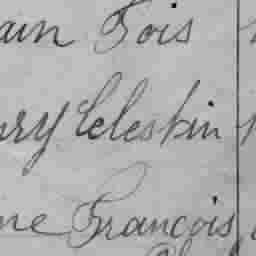 ain Fois
ry Celestin
ne François